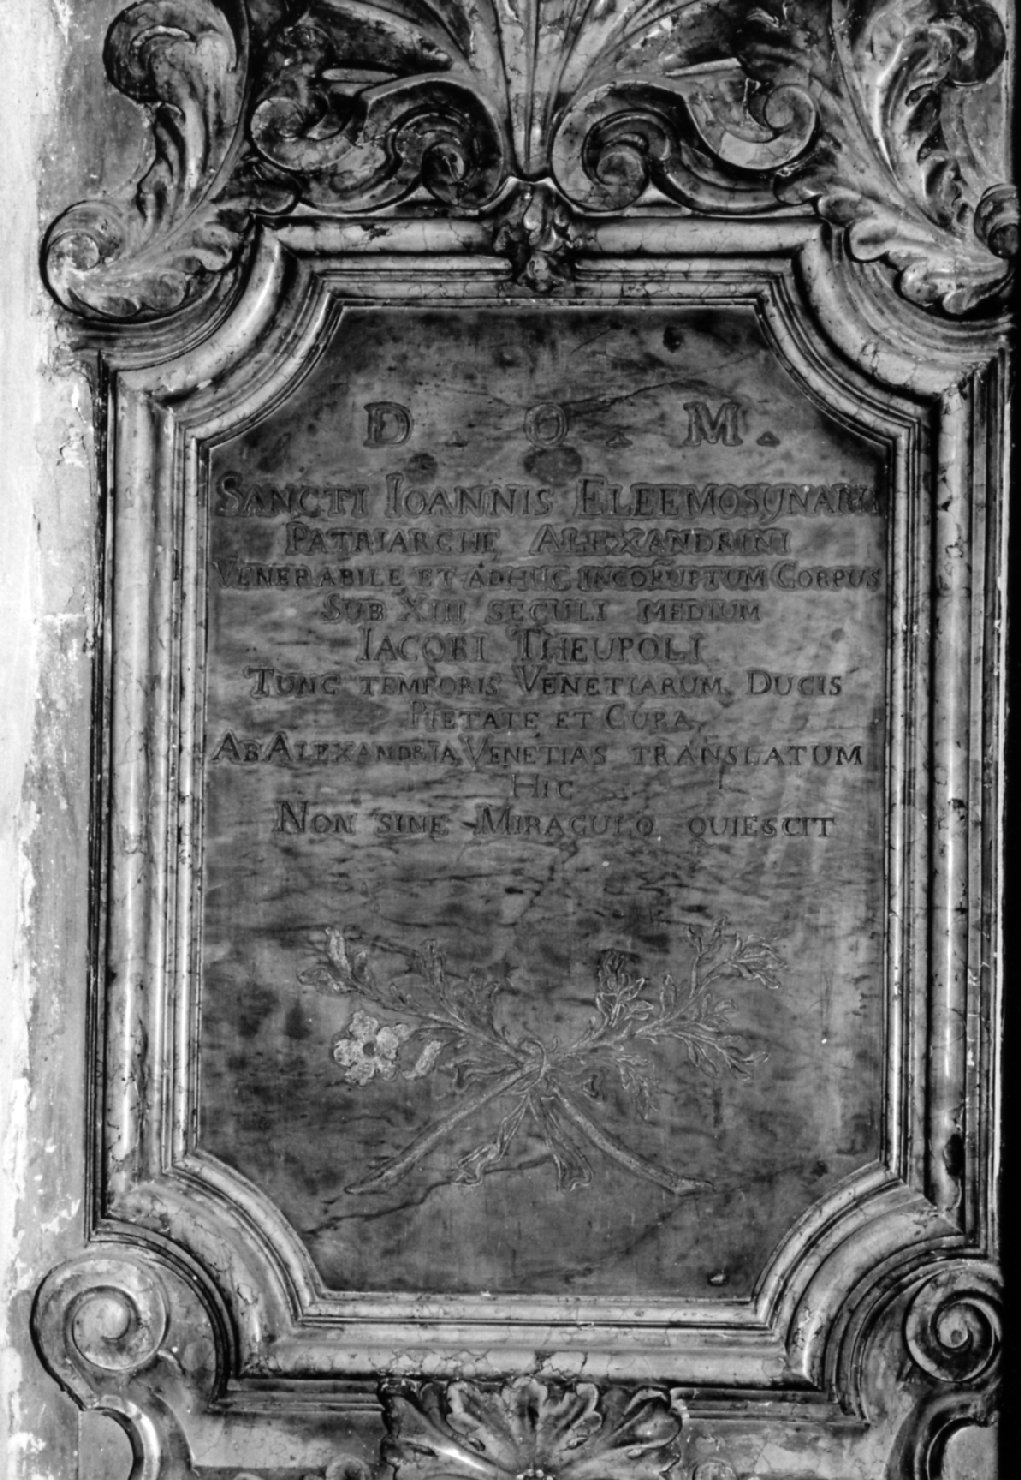 D. O. M.
SANCTI IOANNIS ELEEMOSYNARII
PATRIARCHE ALEXANDRINI
VENERABILE ET ADHUC INCORUPTUM CORPUS
SUB XIII SECULI MEDIUM
IACOBI THEUPOLI
TUNC TEMPORIS VENETIARUM DUCIS
PIETATE ET CURA
AB ALEXANDRIA VENETIAS TRANSLATUM
HIC
NON SINE MIRACULO QUIESCIT